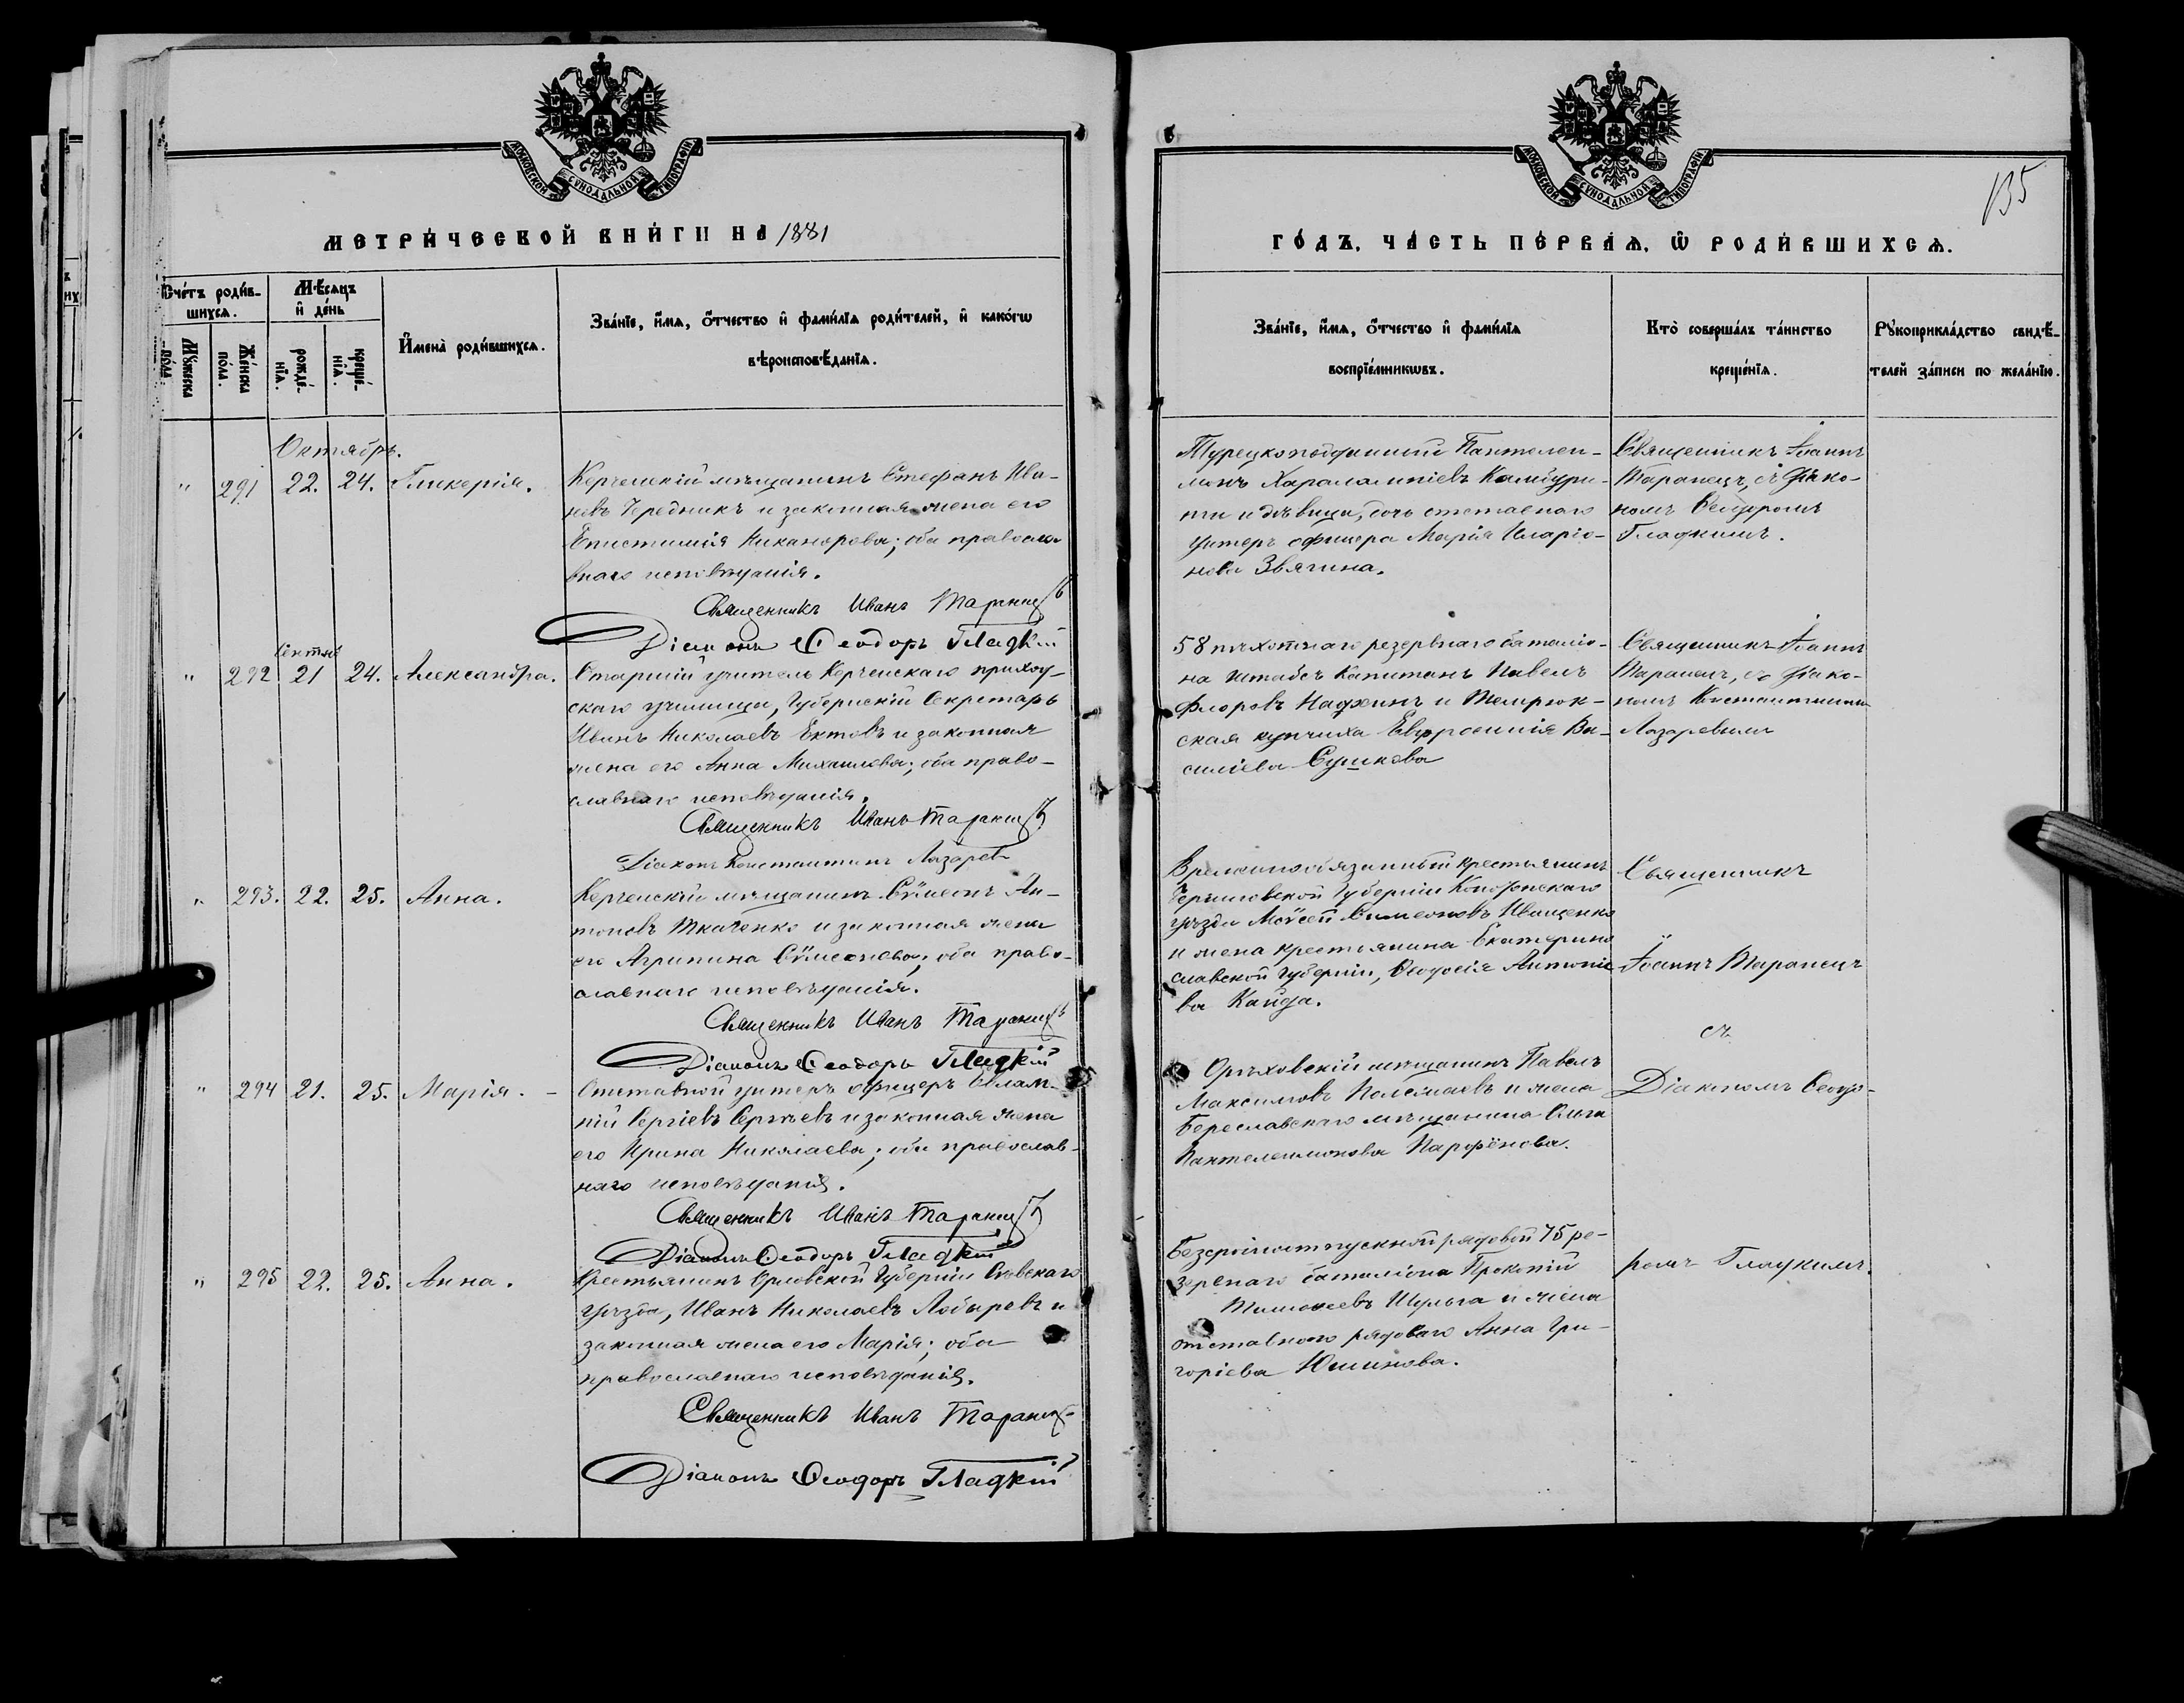 МОСКОВСКОЙ СѴНОДАЛЬНОЙ ТИПОГРАФІИ
МЕТРИ́ЧЕСКОЙ КНИ́ГИ НА 1881
Сче́тъ роди́в-
шихсѧ.
Мѣ́сѧцъ
и҆ де́нь
И҆мена̀ роди́вшихсѧ.
Зва́нїе, и҆́мѧ, ѻ҆́тчество и҆ фами́лїѧ роди́телей, и҆ како́гѡ
вѣроисповѣ́данїѧ.
Мꙋ́жеска
по́ла.
Же́нска
по́ла.
рожде́-
нїѧ.
креще́-
нїѧ.
Октябрь.
" 291 22. 24. Гликерія.
Керченскій мѣщанинъ Стефанъ Ива-
новъ Чередникъ и законная жена его
Епистимія Никанорова; оба правосла-
внаго исповѣданія.
Священникъ Иванъ Таранецъ
Діаконъ Ѳеодоръ Гладкій
" 292 21 24. Александра.
Старшій учитель Керченскаго приход-
скаго училища, Губернскій Секретарь
Иванъ Николаевъ Ектовъ и законная
жена его Анна Михаилова; оба право-
славнаго исповѣданія.
Священникъ Иванъ Таранецъ
Діаконъ Константинъ Лазаревъ
" 293. 22. 25. Анна.
Керченскій мѣщанинъ Сѵмеонъ Ан-
тоновъ Ткаченко и законная жена
его Агрипина Сѵмеонова; оба право-
славнаго исповѣданія.
Священникъ Иванъ Таранецъ
Діаконъ Ѳеодоръ Гладкій
" 294 21. 25. Марія.
Отставной унтеръ офицеръ Евлам-
пій Сергіевъ Сергѣевъ и законная жена
его Ирина Николаева; оба православ-
наго исповѣданія.
Священникъ Иванъ Таранецъ
Діаконъ Ѳеодоръ Гладкій
" 295 22. 25. Анна.
Крестьянинъ Орловской Губерніи Сѣвскаго
уѣзда, Иванъ Николаевъ Лобыревъ и
законная жена его Марія; оба
православнаго исповѣданія.
Священникъ Иванъ Таранецъ
Діаконъ Ѳеодоръ Гладкій
МОСКОВСКОЙ СѴНОДАЛЬНОЙ ТИПОГРАФІИ
135
ГО́ДЪ, ЧА́СТЬ ПЕ́РВАѦ, Ѡ҆ РОДИ́ВШИХСѦ.
Зва́нїе, и҆́мѧ, ѻ҆́тчество и҆ фами́лїѧ
воспрїе́мникѡвъ.
Кто̀ соверша́лъ та́инство
креще́нїѧ.
Рꙋкоприкла́дство свидѣ́-
телей за́писи по жела́нїю.
Турецкоподданный Пантелеи-
монъ Харалампіевъ Камбури-
ти и дѣвица, дочь отставнаго
унтеръ офицера Марія Иларіо-
нова Звягина.
Священникъ Іоаннъ
Таранецъ, съ діако-
номъ Ѳеодоромъ
Гладкимъ.
58 пѣхотнаго резервнаго баталіо-
на Штабсъ Капитанъ Павелъ
Флоровъ Надхинъ и Темрюк-
ская купчиха Евфросинія Ва-
силіева Сушкова
Священникъ Іоаннъ
Таранецъ, съ діако-
номъ Константиномъ
Лазаревымъ
Временнообязанный крестьянинъ
Черниговской Губерніи Конотопскаго
уѣзда Моѵсей Симеоновъ Иващенко
и жена крестьянина Екатерино
славской Губерніи, Ѳеодосія Антоніе
ва Кайда.
Священникъ
Іоаннъ Таранецъ
съ
Орѣховскій мѣщанинъ Павелъ
Максимовъ и жена
Береславскаго мѣщанина Ольга
Пантелеимонова Парфёнова.
Діакономъ Ѳеодо-
Безсрочноотпускной рядовой 75 ре-
зервнаго баталіона Прокопій
Тимоѳеевъ Шульга и жена
отставного рядоваго Анна Гри-
горіева Юшинова.
ромъ Гладкимъ.